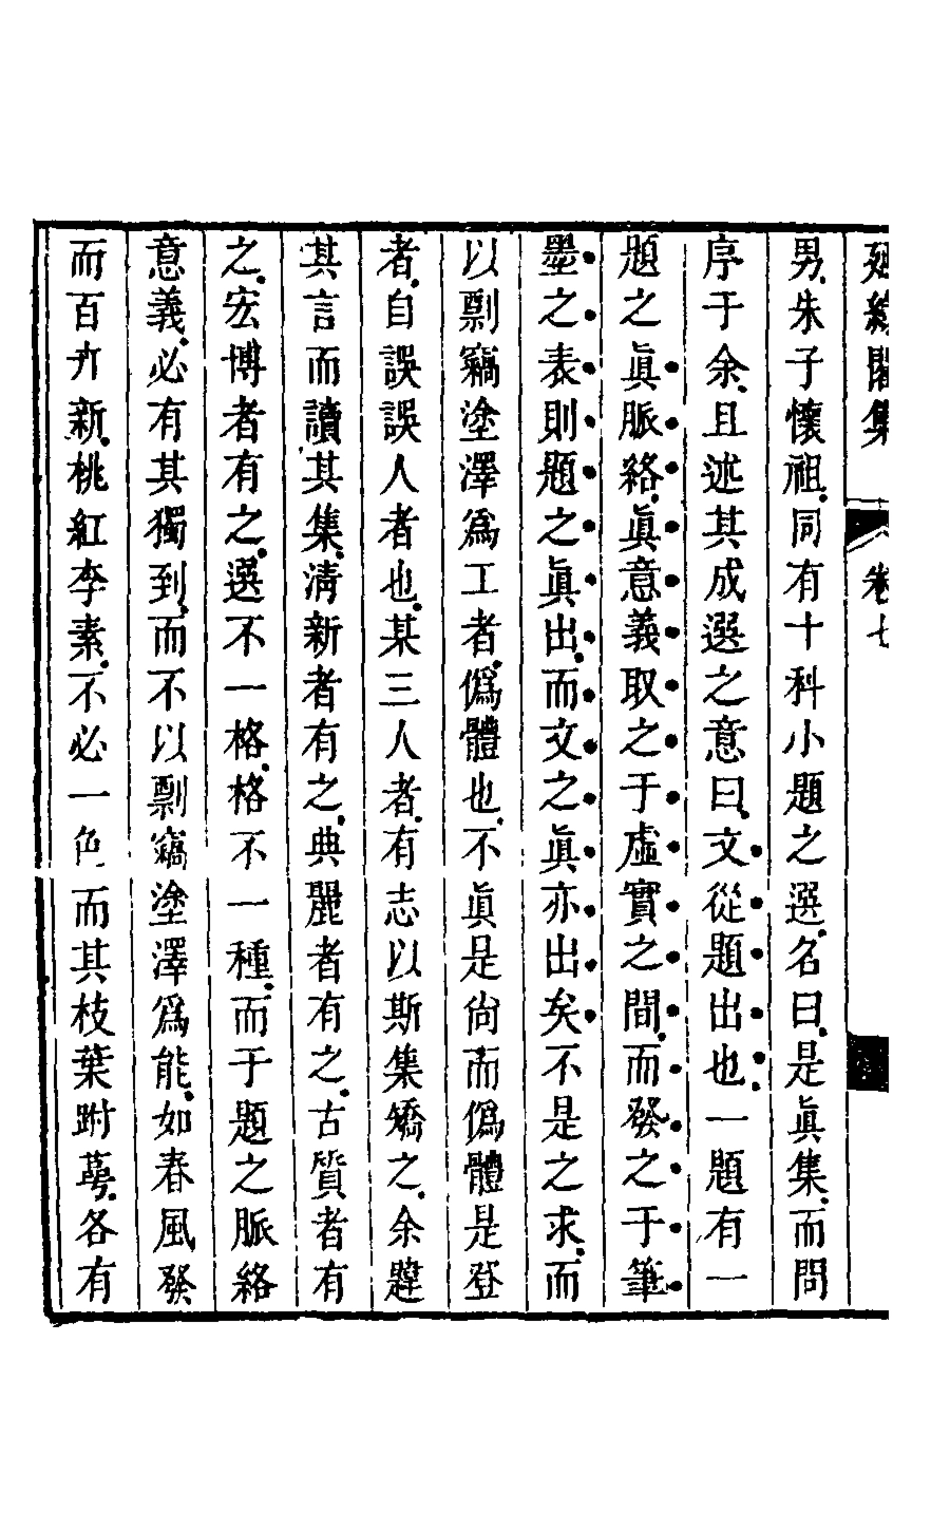 延綠閣集 卷七
男朱子懷祖同有十科小題之選名曰是眞集而問
序于余且述其成選之意曰文從題出也一題有一
題之眞脈絡眞意義取之于虛實之間而發之于筆
墨之表則題之眞出而文之眞亦出矣不是之求而
以剽竊塗澤爲工者僞體也不眞是尙而僞體是登
者自誤誤人者也某三人者有志以斯集矯之余韙
其言而讀其集淸新者有之典麗者有之古質者有
之宏博者有之選不一格格不一種而于題之脈絡
意義必有其獨到而不以剽竊塗澤爲能如春風發
而百卉新桃紅李素不必一色而其枝葉跗萼各有